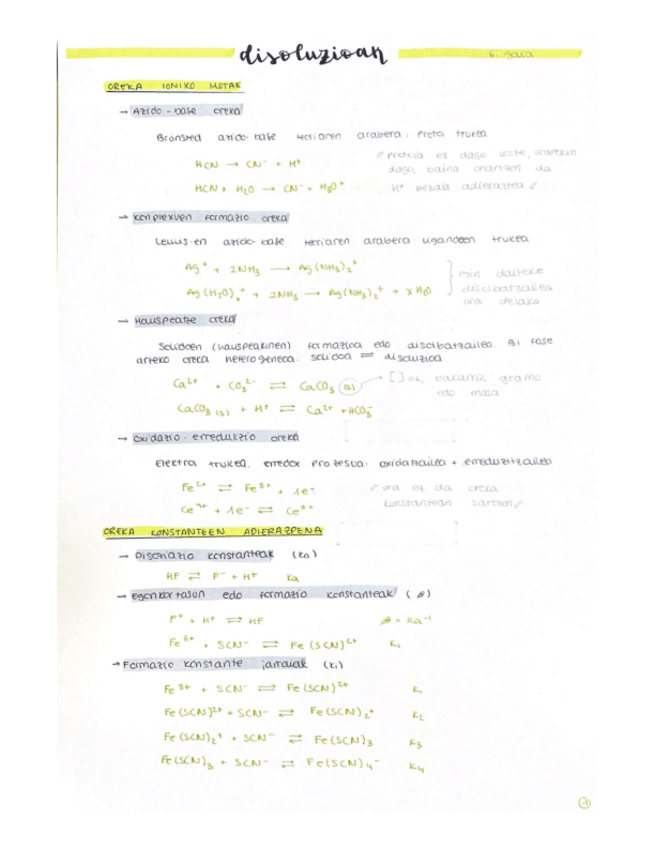 disoluzioak
6. gaia
OREKA IONIKO MOTAK
→ Azido-base oreka
Brönsted azido-base teoriaren arabera: protoi trukea
HCN → CN⁻ + H⁺
HCN + H₂O → CN⁻ + H₃O⁺
// protoia ez dago solte,
dago, baina onartzen da
H⁺ bezala adieraztea //
→ Konplexuen formazio oreka
Lewis-en azido-base teoriaren arabera: ligandoen trukea
Ag⁺ + 2NH₃ → Ag(NH₃)₂⁺
Ag(H₂O)ₓ⁺ + 2NH₃ → Ag(NH₃)₂⁺ + xH₂O
ezin daiteke
disolbatzailea
ura delako
→ Hauspeatze oreka
Solidoen (hauspeakinen) formazioa edo disolbatzailea. Bi fase
arteko oreka heterogeneoa: solidoa ⇌ disoluzioa
Ca²⁺ + CO₃²⁻ ⇌ CaCO₃ (s) → [ ] ez, bakarrik gramo
edo masa
CaCO₃ (s) + H⁺ ⇌ Ca²⁺ + HCO₃⁻
→ Oxidazio-erredukzio oreka
Elektroi trukea, erredox prozesua: oxidatzailea + erreduzitzailea
Fe²⁺ ⇌ Fe³⁺ + 1e⁻
Ce⁴⁺ + 1e⁻ ⇌ Ce³⁺
// ura ez da oreka
konstantean sartzen //
OREKA KONSTANTEEN ADIERAZPENA
→ Disoziazio konstanteak (Ka)
HF ⇌ F⁻ + H⁺ Ka
→ Egonkortasun edo formazio konstanteak (β)
F⁺ + H⁺ ⇌ HF β = Ka⁻¹
Fe³⁺ + SCN⁻ ⇌ Fe(SCN)²⁺ K₁
→ Formazio konstante jarraiak (Ki)
Fe³⁺ + SCN⁻ ⇌ Fe(SCN)²⁺ K₁
Fe(SCN)²⁺ + SCN⁻ ⇌ Fe(SCN)₂⁺ K₂
Fe(SCN)₂⁺ + SCN⁻ ⇌ Fe(SCN)₃ K₃
Fe(SCN)₃ + SCN⁻ ⇌ Fe(SCN)₄⁻ K₄